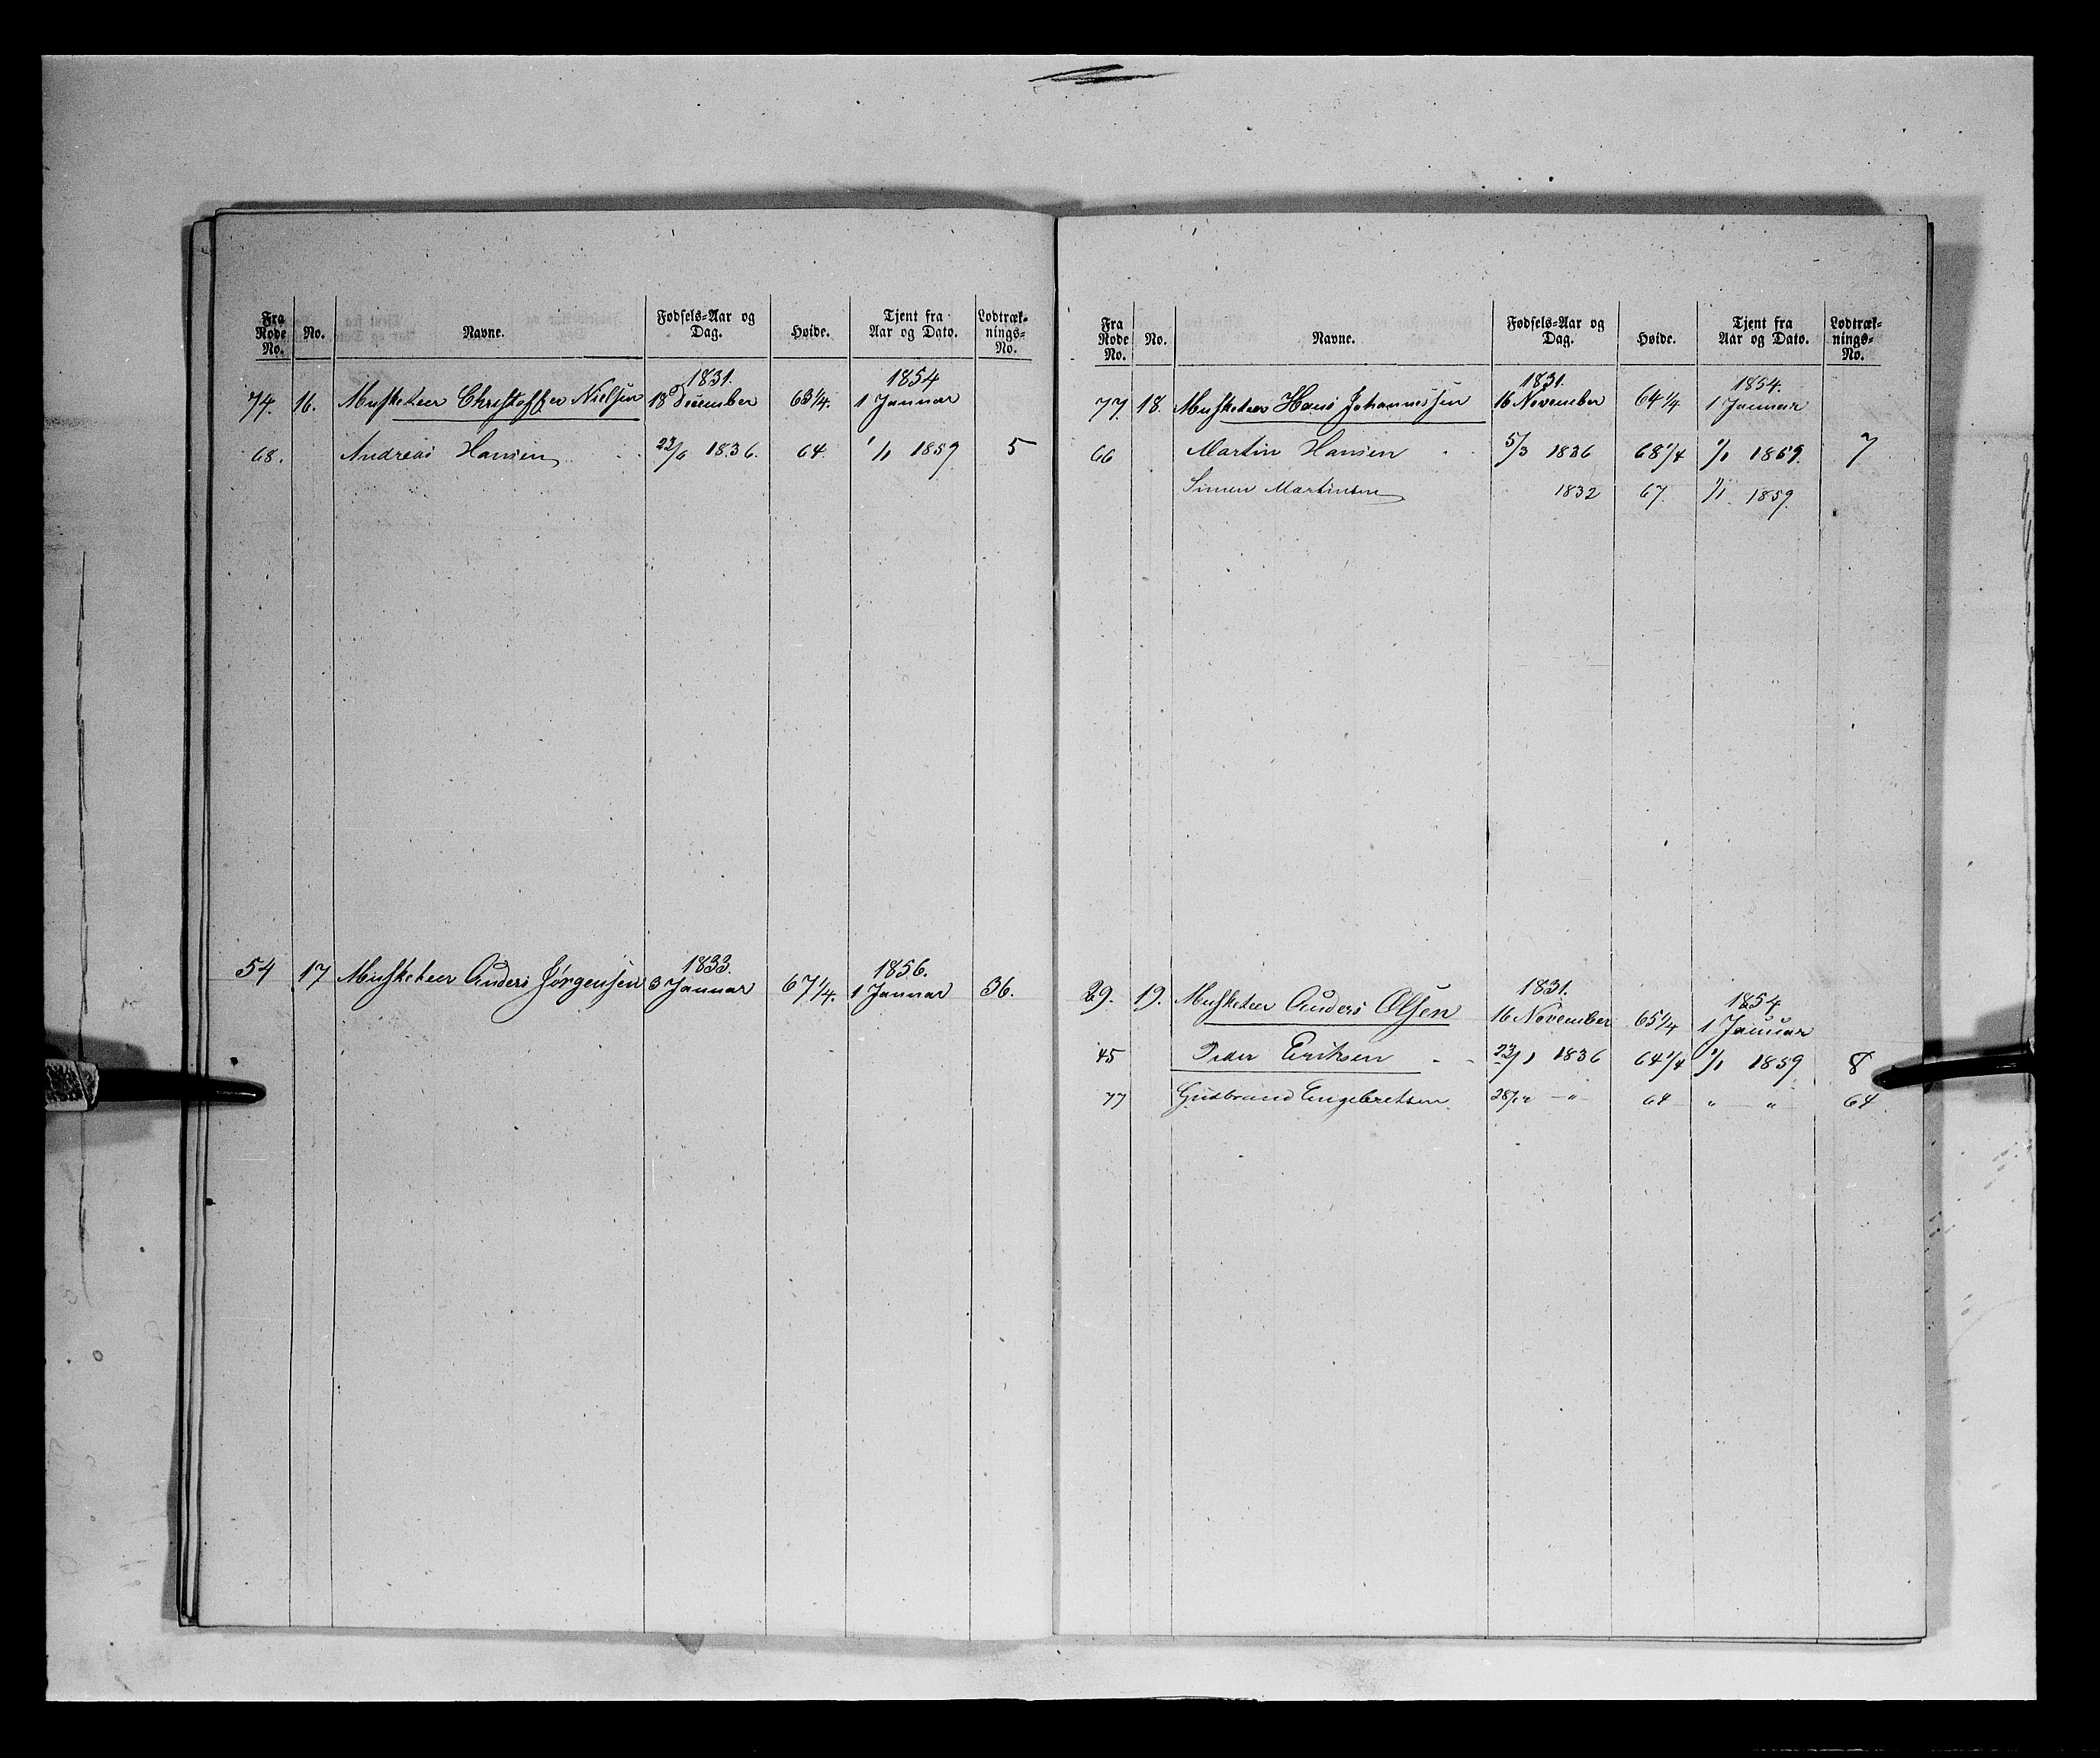 Fra Rode No. No. Navne. Fødsels-Aar og Dag. Høide. Tjent fra Aar og Dato. Lodtræk-nings-No.
1831. 1854
74. 16. Musketeer Christoffer Nielsen 18 December 63 1/4. 1 Januar
68. Andreas Hansen 23/6 1836. 64 1/1 1859 5
1833. 1856.
54 17 Musketeer Anders Jørgensen 3 Januar 67 1/4. 1 Januar 36.
Fra Rode No. No. Navne. Fødsels-Aar og Dag. Høide. Tjent fra Aar og Dato. Lodtræk-nings-No.
1831. 1854.
77. 18. Musketeer Hans Johannessen 16 November 64 1/4 1 Januar
66 Martin Hansen 5/3 1836 68 1/4 1/1 1859. 7
Simen Martinsen 1832 67. 1/1 1859.
1831. 1854
29. 19. Musketeer Anders Olsen 16 November 65 1/4 1 Januar
45 Peder Eriksen 23/1 1836 64 1/4 1/1 1859 8
77 Gudbrand Engebretsen 64 " " 64